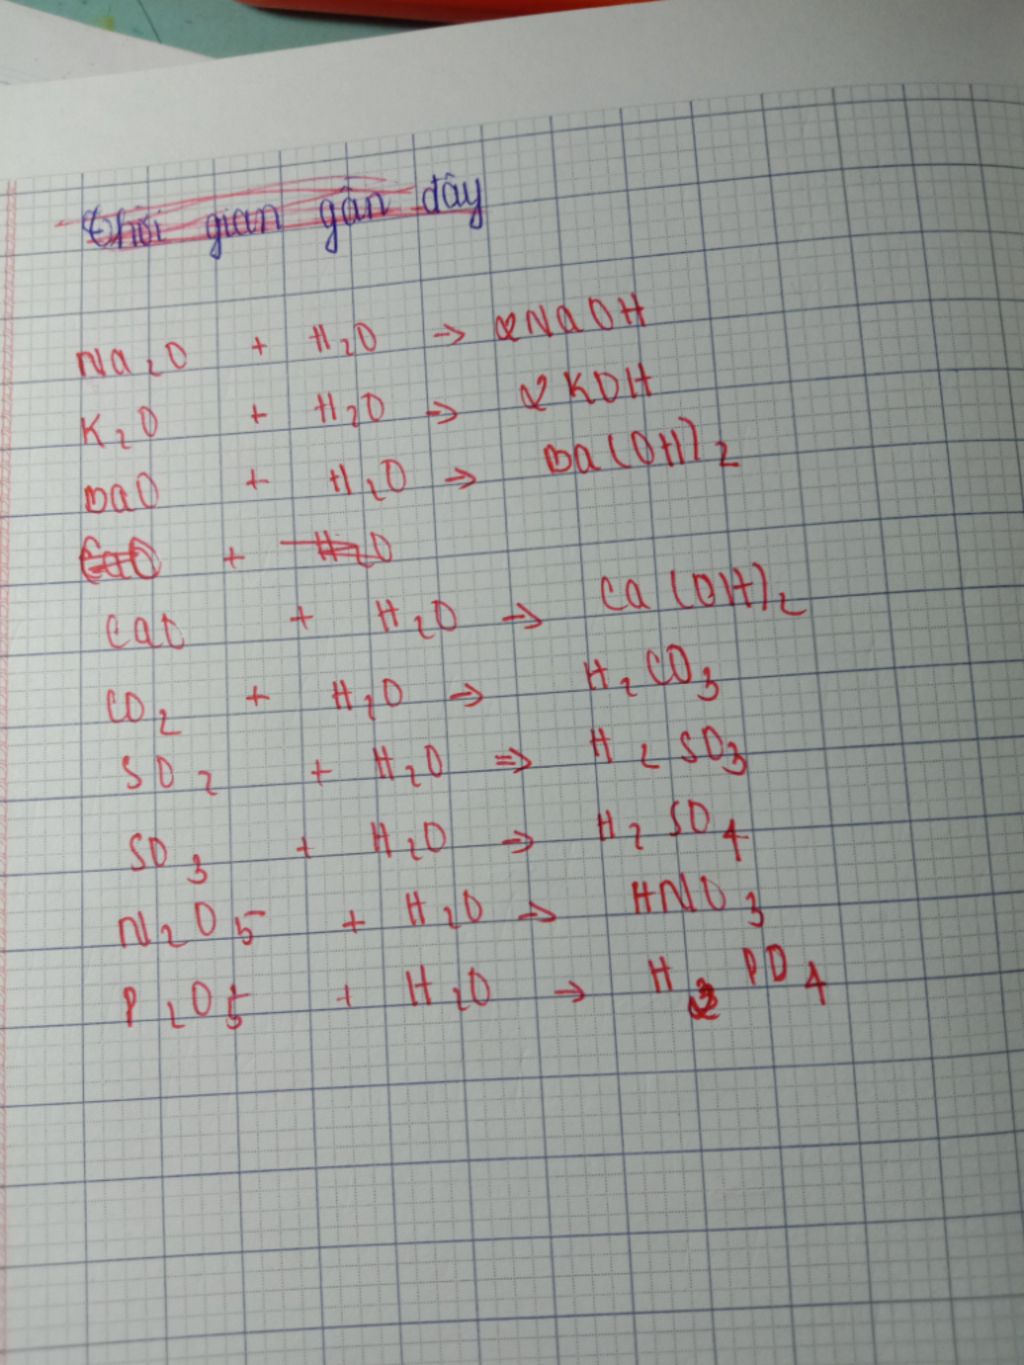 thời gian gần đây
Na₂O + H₂O → 2NaOH
K₂O + H₂O → 2KOH
BaO + H₂O → Ba(OH)₂
CaO + H₂O
CaO + H₂O → Ca(OH)₂
CO₂ + H₂O → H₂CO₃
SO₂ + H₂O ⇒ H₂SO₃
SO₃ + H₂O → H₂SO₄
N₂O₅ + H₂O → HNO₃
P₂O₅ + H₂O → H₃PO₄